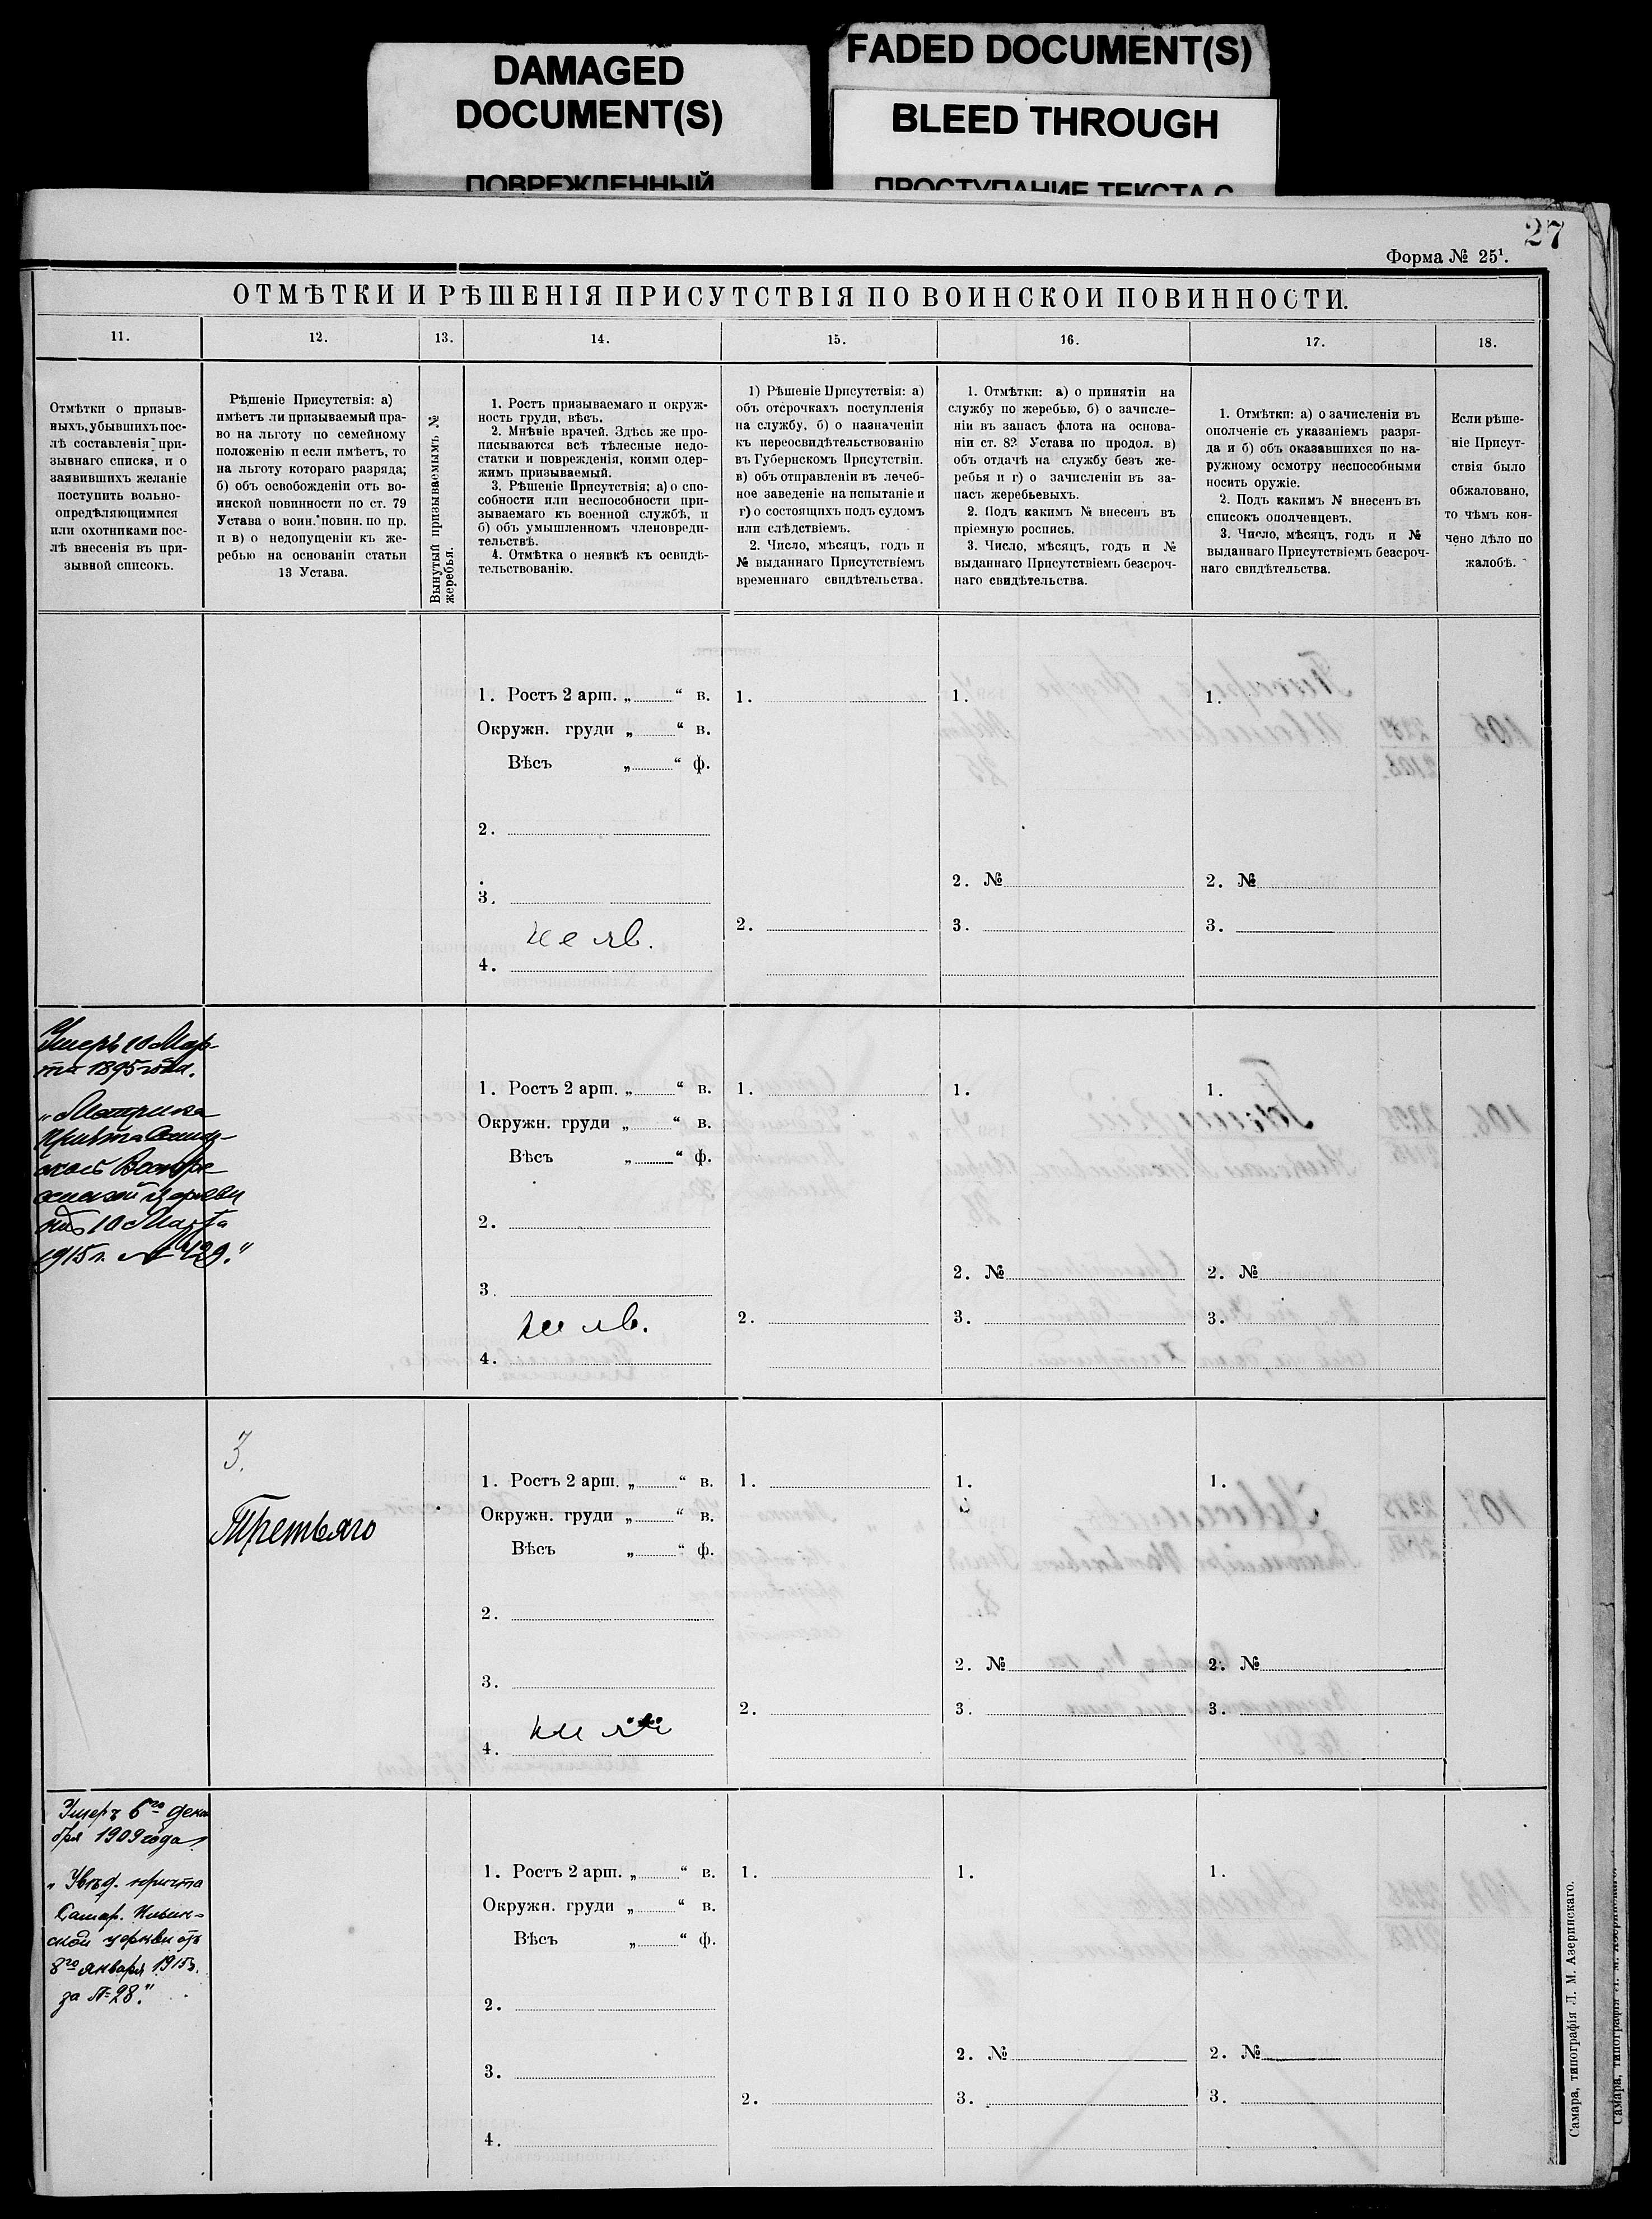 DAMAGED
DOCUMENT(S)
ПОВРЕЖДЕННЫЙ
FADED DOCUMENT(S)
BLEED THROUGH
ПРОСТУПАНИЕ ТЕКСТА С
27
Форма № 25¹.
ОТМѢТКИ И РѢШЕНІЯ ПРИСУТСТВІЯ ПО ВОИНСКОИ ПОВИННОСТИ.
11.
12.
13.
14.
15.
16.
17.
18.
Отмѣтки о призыв-
ныхъ, убывшихъ пос-
лѣ составленія при-
зывнаго списка, и о
заявившихъ желаніе
поступить вольно-
опредѣляющимися
или охотниками пос-
лѣ внесенія въ при-
зывной списокъ.
Рѣшеніе Присутствія: а)
имѣетъ ли призываемый пра-
во на льготу по семейному
положенію и если имѣетъ, то
на льготу котораго разряда;
б) объ освобожденіи отъ во-
инской повинности по ст. 79
Устава о воин. повин. по пр.
и в) о недопущеніи къ же-
ребью на основаніи статьи
13 Устава.
Вынутый призываемымъ №
жеребья.
1. Ростъ призываемаго и окруж-
ность груди, вѣсъ.
2. Мнѣніе врачей. Здѣсь же про-
писываются всѣ тѣлесные недо-
статки и поврежденія, коими одер-
жимъ призываемый.
3. Рѣшеніе Присутствія: а) о спо-
собности или неспособности при-
зываемаго къ военной службѣ, и
б) объ умышленномъ членовреди-
тельствѣ.
4. Отмѣтка о неявкѣ къ освидѣ-
тельствованію.
1) Рѣшеніе Присутствія: а)
объ отсрочкахъ поступленія
на службу, б) о назначеніи
къ переосвидѣтельствованію
въ Губернскомъ Присутствіи.
в) объ отправленіи въ лечеб-
ное заведеніе на испытаніе и
г) о состоящихъ подъ судомъ
или слѣдствіемъ.
2. Число, мѣсяцъ, годъ и
№ выданнаго Присутствіемъ
временнаго свидѣтельства.
1. Отмѣтки: а) о принятіи на
службу по жеребью, б) о зачисле-
ніи въ запасъ флота на основа-
ніи ст. 82 Устава по продол. в)
объ отдачѣ на службу безъ же-
ребья и г) о зачисленіи въ за-
пасъ жеребьевыхъ.
2. Подъ какимъ № внесенъ въ
пріемную роспись.
3. Число, мѣсяцъ, годъ и №
выданнаго Присутствіемъ безсроч-
наго свидѣтельства.
1. Отмѣтки: а) о зачисленіи въ
ополченіе съ указаніемъ разря-
да и б) объ оказавшихся по на-
ружному осмотру неспособными
носить оружіе.
2. Подъ какимъ № внесенъ въ
списокъ ополченцевъ.
3. Число, мѣсяцъ, годъ и №
выданнаго Присутствіемъ безсроч-
наго свидѣтельства.
Если рѣше-
ніе Присут-
ствія было
обжаловано,
то чѣмъ кон-
чено дѣло по
жалобѣ.
1. Ростъ 2 арш. „ “ в.
Окружн. груди „ “ в.
Вѣсъ „ “ ф.
2.
3.
не яв.
4.
1.
2.
1.
2. №
3.
1.
2. №
3.
Умеръ 10 Мар-
та 1895 года.
„Метрика
10 Марта
1915 г. № 429."
1. Ростъ 2 арш. „ “ в.
Окружн. груди „ “ в.
Вѣсъ „ “ ф.
2.
3.
не яв.
4.
1.
2.
1.
2. №
3.
1.
2. №
3.
3.
Третьяго
1. Ростъ 2 арш. „ “ в.
Окружн. груди „ “ в.
Вѣсъ „ “ ф.
2.
3.
не яв
4.
1.
2.
1.
2. №
3.
1.
2. №
3.
Умеръ 6го Дека
бря 1909 года
„Увѣд. причта
Самар. Ильин-
ской церкви отъ
8го Января 1915 г.
за № 28."
1. Ростъ 2 арш. „ “ в.
Окружн. груди „ “ в.
Вѣсъ „ “ ф.
2.
3.
4.
1.
2.
1.
2. №
3.
1.
2. №
3.
Самара, типографія Л. М. Азеринскаго.